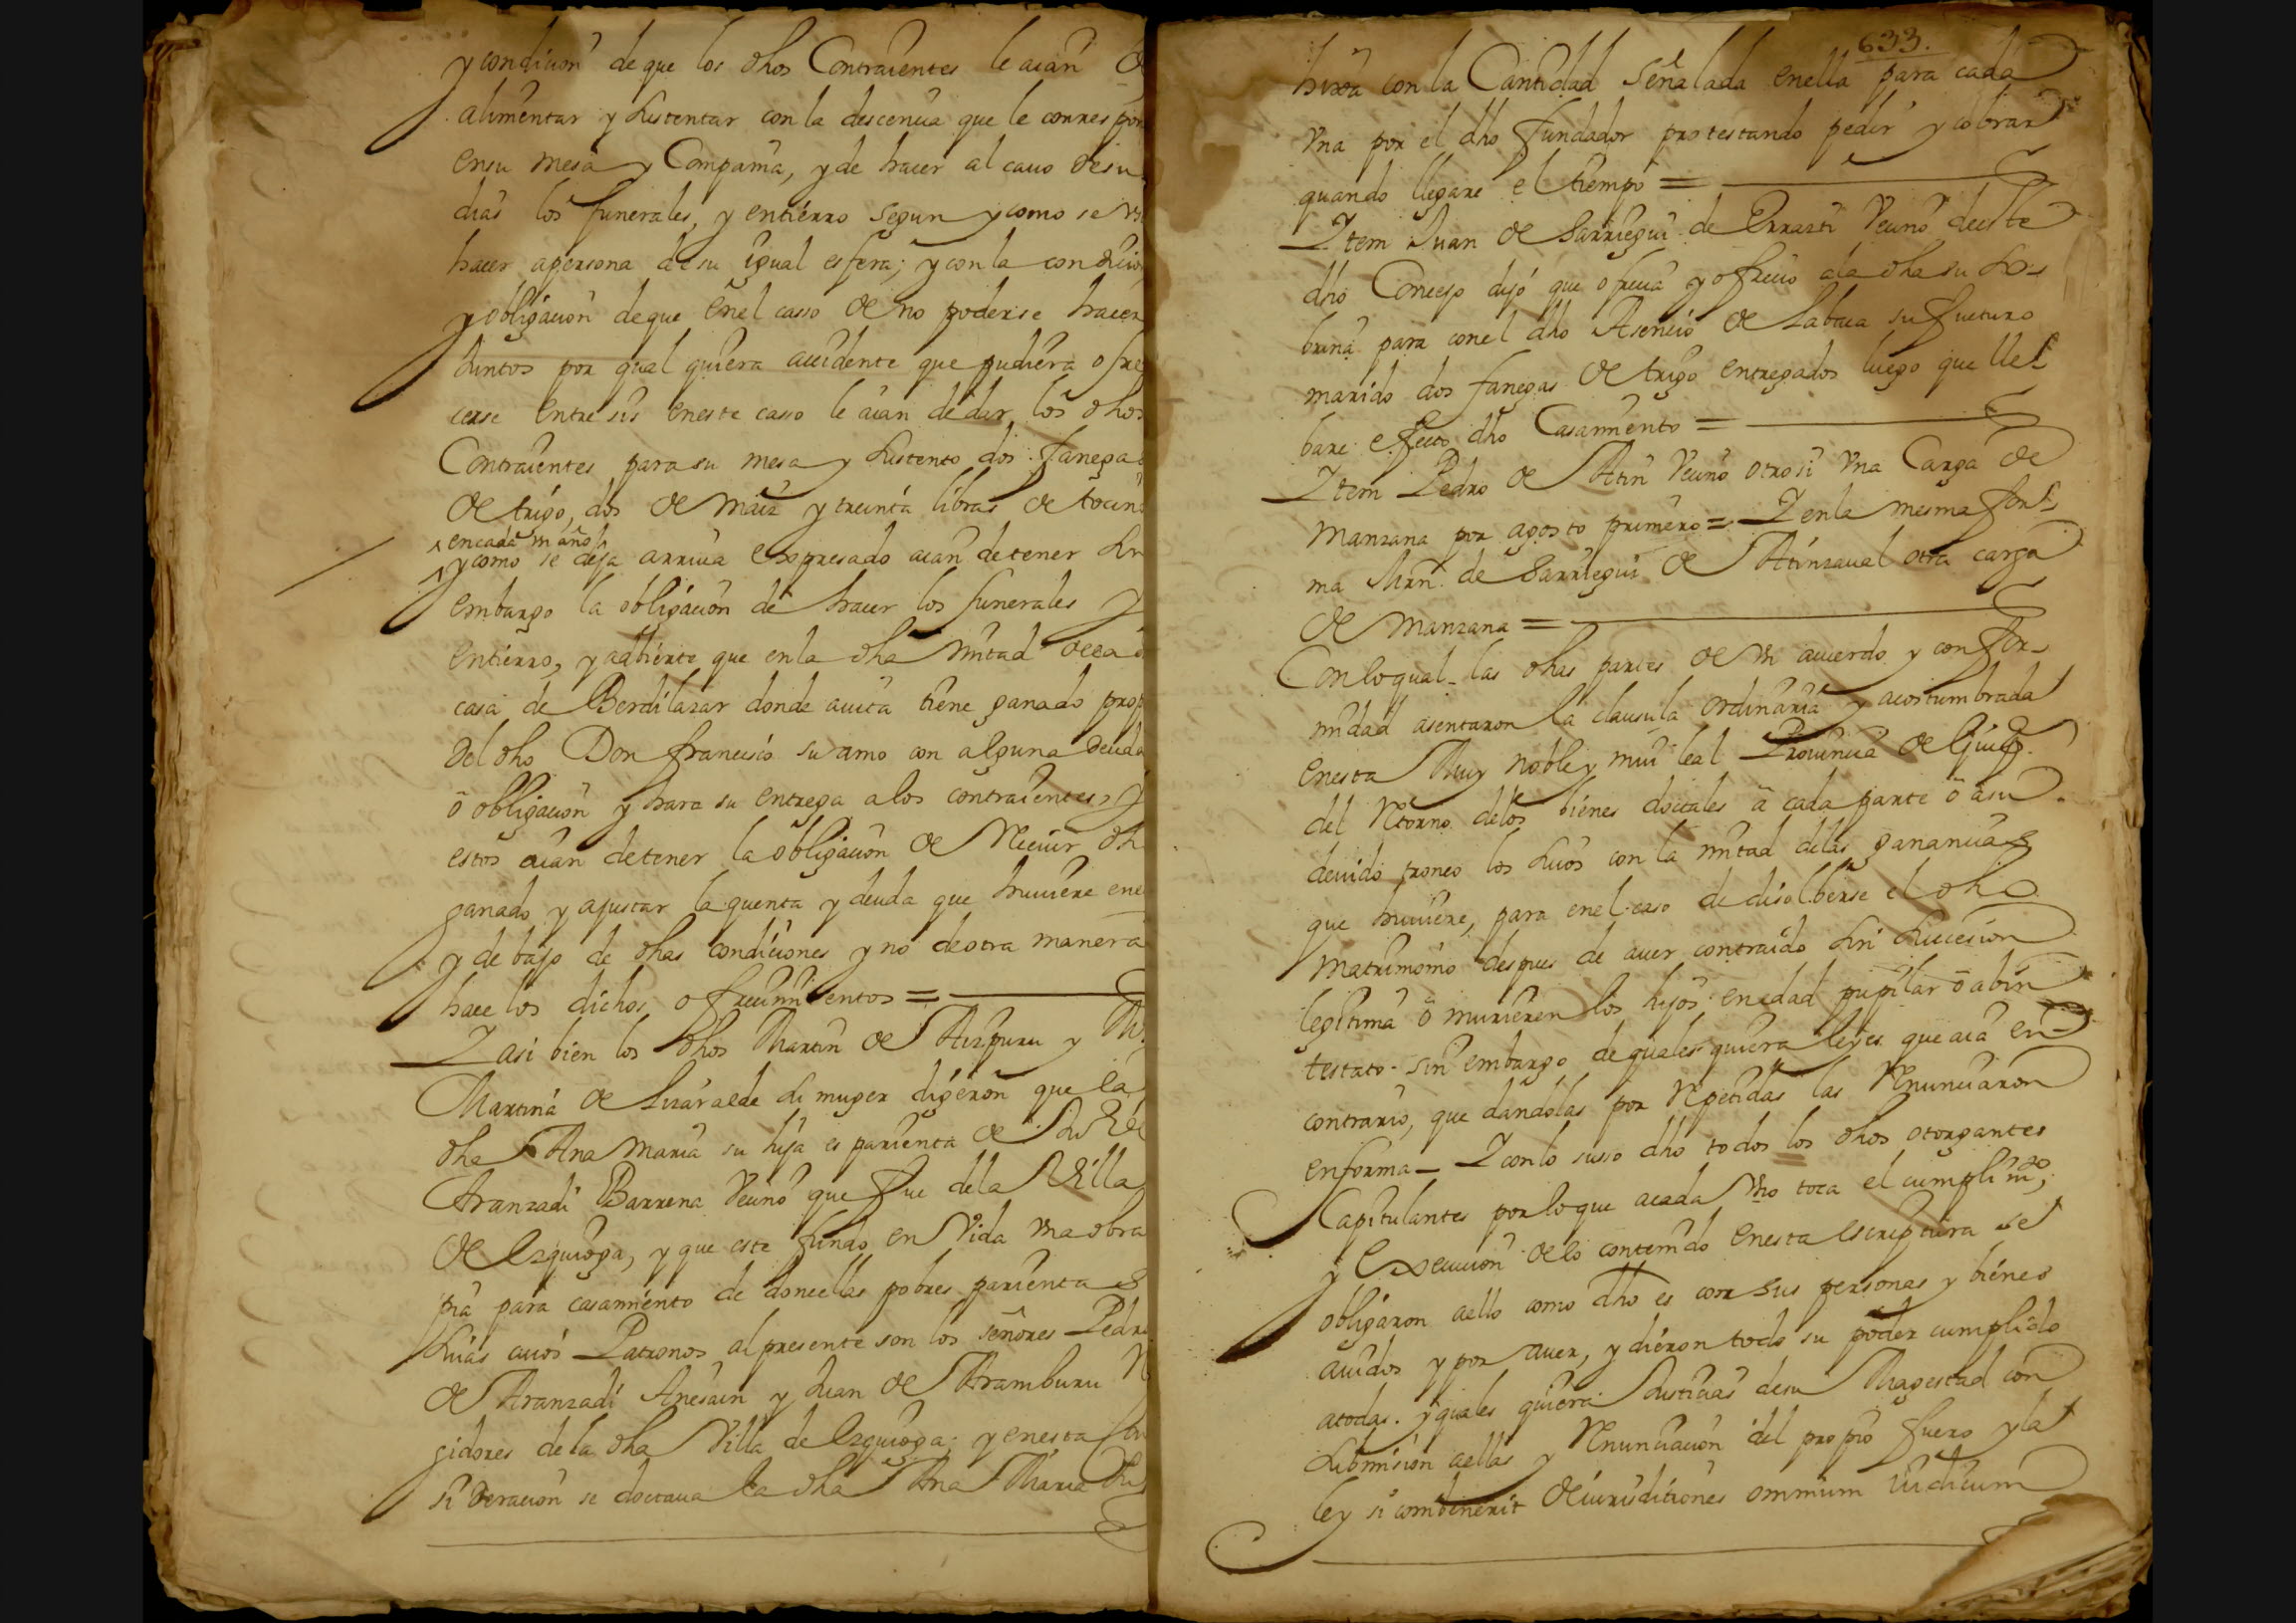 y condicion de que los dhos Contraientes le aian de
alimentar y sustentar con la descencia que le corres pon
en su mesa y Compañia, y de hacer al cauo de su
dias los funerales, y entierro segun y como se vs
hacer a persona de su igual esfera; y con la condicio
y obligacion de que en el casso de no poderse hacer
Juntos por qual quiera accidente que pudiera ofre
cerse entre sis en este casso le aian de dar los dhos
Contraientes para su mesa y sustento dos fanegas
de trigo, dos de maiz y treinta libras de tocino
en cada vn año
y como se deja arriua expresado aian de tener sin
embargo la obligacion de hacer los funerales y
entierro, y adbierte que en la dha mitad de la
casa de Berdilazar donde auita tiene ganado prop
del dho Don francisco su amo con alguna deuda
o obligacion y hara su entrega a los contraientes, y
estos aian de tener la obligacion de Reciuir dh
ganado y ajustar la quenta y deuda que huuiere ene
y de bajo de dhas condiciones y no de otra manera
hace los dichos ofrecimientos =
Y asi bien los dhos Martin de Aizpuru y
Martina de Lizaralde su muger digeron que la
dha Ana Maria su hija es parienta de
Aranzadi Barrena Vecino que fue de la Villa
de Ezquioga, y que este fundo en Vida vna obra
pia para casamiento de doncellas pobres parientas
suias cuios Patronos al presente son los señores Pedro
de Aranzadi Anesain y Juan de Aramburu
gidores de la dha Villa de Ezquioga; y en esta con
si deracion se doctaua la dha Ana Maria su
633.
hixa con la Cantidad señalada en ella para cada
vna por el dho fundador protestando pedir y cobrar
quando llegare el tiempo =
Item Juan de Sarriegui de Errazti Vecino de este
dho Concejo dijó que ofrecia y ofrecio a la dha su so-
brina para con el dho Asencio de Labaca su futuro
marido dos fanegas de trigo entregados luego que lle-
bare efecto dho Casamiento =
Item Pedro de Atin Vecino otro si vna Carga de
Manzana por agosto primero = Y en la mesma for-
ma Mrn. de Sarriegui de Atinzaual otra carga
de Manzana =
Con lo qual las dhas partes de vn acuerdo y confor-
midad asentaron la clausula ordinaria y acostumbrada
en esta Muy noble y mui leal Prouincia de Guipz.
del Retorno de los bienes doctales a cada parte o a su
deuido tronco los suios con la mitad de las ganancias
que huuiere, para en el caso de disolberse el dho
Matrimonio despues de auer contraido sin sucesion
legitima o murieren los hijos en edad pupilar o abin
testato sin embargo de quales quiera leyes que aia en
contrario, que dandolas por Repetidas las Renunciaron
en forma - Y con lo susso dho todos los dhos otorgantes
Capitulantes por lo que a cada vno toca el cumplimto,
y Execucion de lo contenido en esta escriptura se
obligaron a ello como dho es con sus personas y bienes
auidos y por auer, y dieron todo su poder cumplido
a todas y quales quiera Justicias de su Magestad con
Submision a ellas y Renunciacion del propio fuero y la
ley si combenerit de iurisditiones omnium iudicum